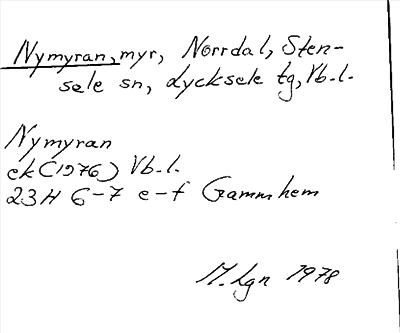 Nymyran, myr, Norrdal, Sten-
sele sn, Lycksele tg, Vb.l.
Nymyran
ek (1976) Vb.l.
23H 6-7 e-f Gammhem
M.Lgn 1978